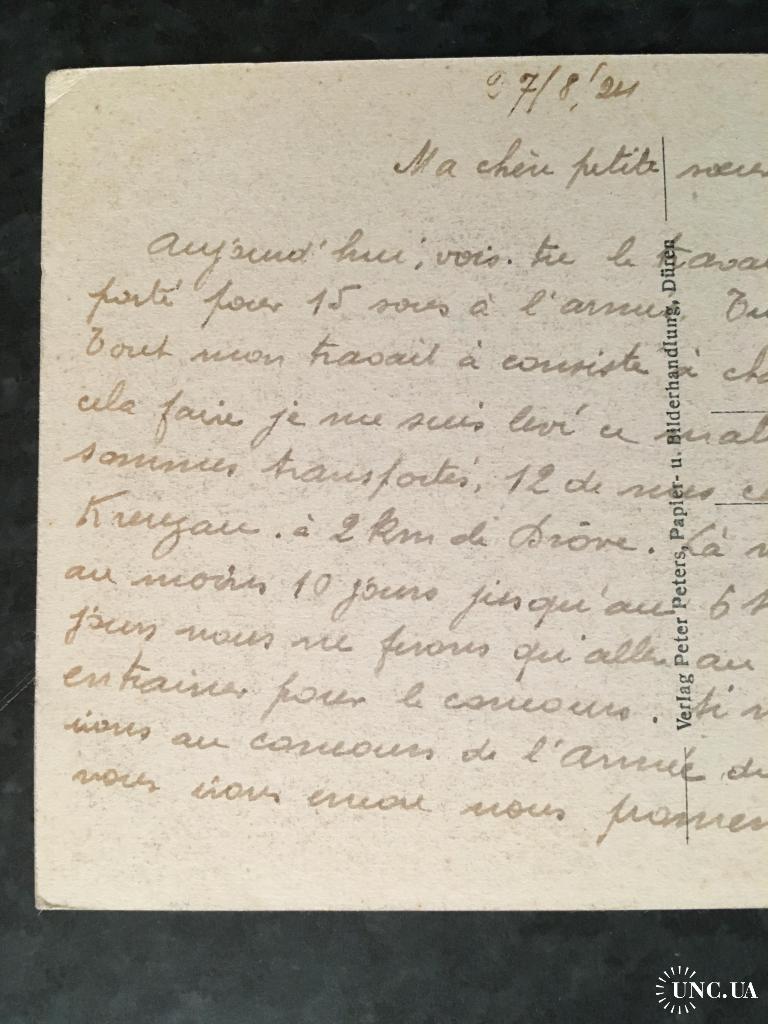 27/8/'24
Ma chère petite sœur
Aujourd'hui, vois-tu le travai
porté pour 15 sous à l'armée. Tu
Tout mon travail à consisté à cha
cela faire je me suis levé ce mat
sommes transportés, 12 de nos c
Kreuzau. à 2 km de Drôve. Là n
au moins 10 jours jusqu'au 6
jours nous ne ferons qu'aller au
entrainer pour le concours. Si n
irons au concours de l'Armée du
nous irons encore nous promen
Verlag Peter Peters, Papier- u. Bilderhandlung, Düren
UNC.UA